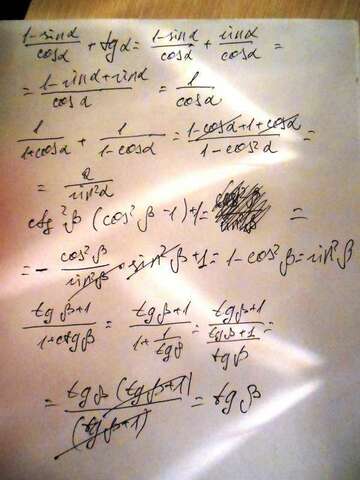 (1-sinα)/cosα + tgα = (1-sinα)/cosα + sinα/cosα =
= (1-sinα+sinα)/cosα = 1/cosα
1/(1+cosα) + 1/(1-cosα) = (1-cosα+1+cosα)/(1-cos²α) =
= 2/sin²α
ctg²β (cos²β-1)+1= =
= - cos²β/sin²β · sin²β+1 = 1-cos²β = sin²β
(tgβ+1)/(1+ctgβ) = (tgβ+1)/(1+1/tgβ) = (tgβ+1)/((tgβ+1)/tgβ) =
= tgβ (tgβ+1)/(tgβ+1) = tgβ